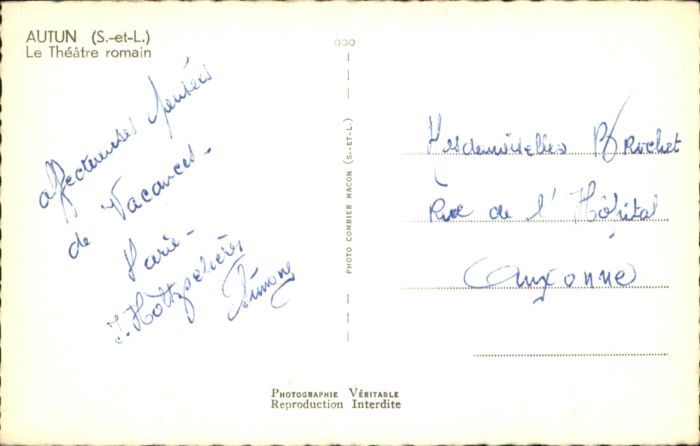 AUTUN (S.-et-L.)
Le Théâtre romain
affectueuses pensées
de Vacances -
Marie -
Simone
PHOTO COMBIER MACON (S.-ET-L.)
Mesdemoiselles Brochet
Rue de l'Hôpital
Auxonne
PHOTOGRAPHIE VÉRITABLE
Reproduction Interdite